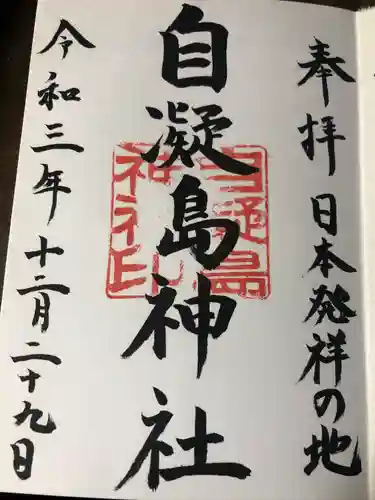 奉拝 日本発祥の地
自凝島神社
自凝島
神社印
令和三年 十二月二十九日